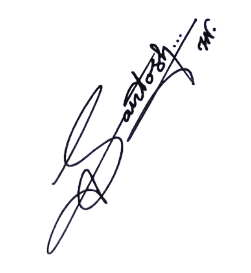 Santosh... W.